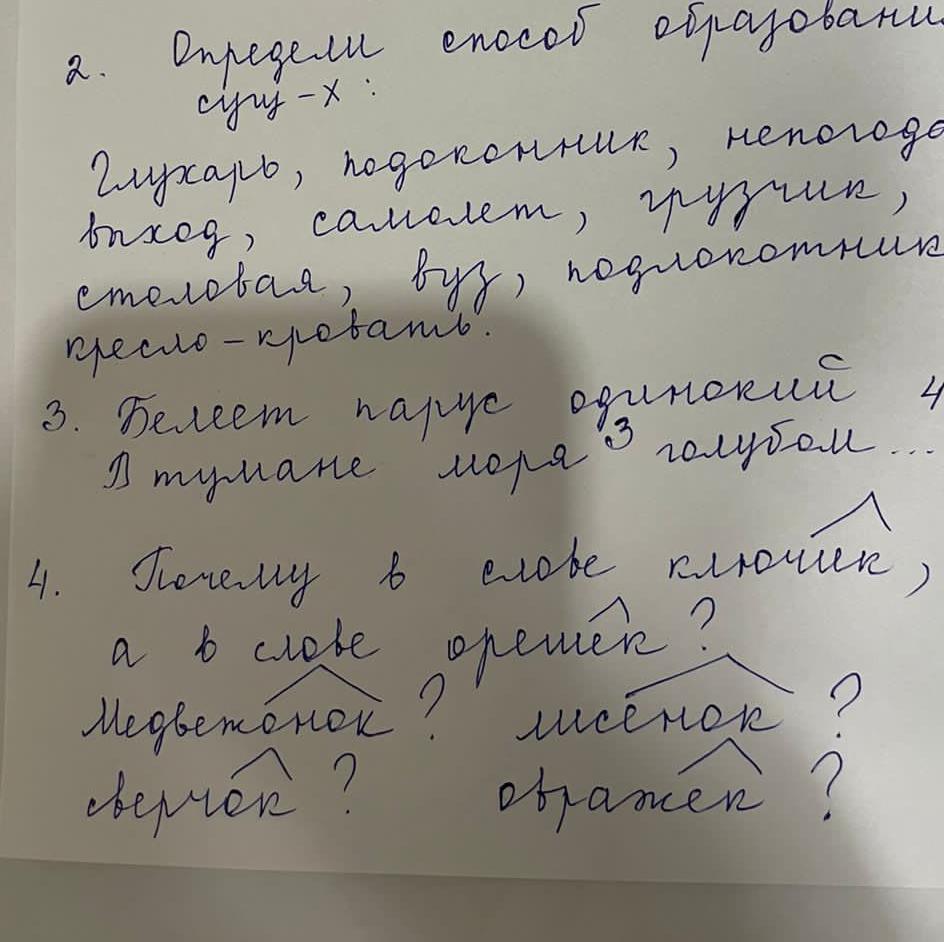 2. Определи способ образовани
сущ-х:
Глухарь, подоконник, непогода
выход, самолет, грузчик,
столовая, вуз, подлокотник
кресло-кровать.
3. Белеет парус одинокий 4
В тумане моря 3 голубом ...
4. Почему в слове ключик,
а в слове орешек?
Медвежонок? лисёнок?
сверчок? овражек?